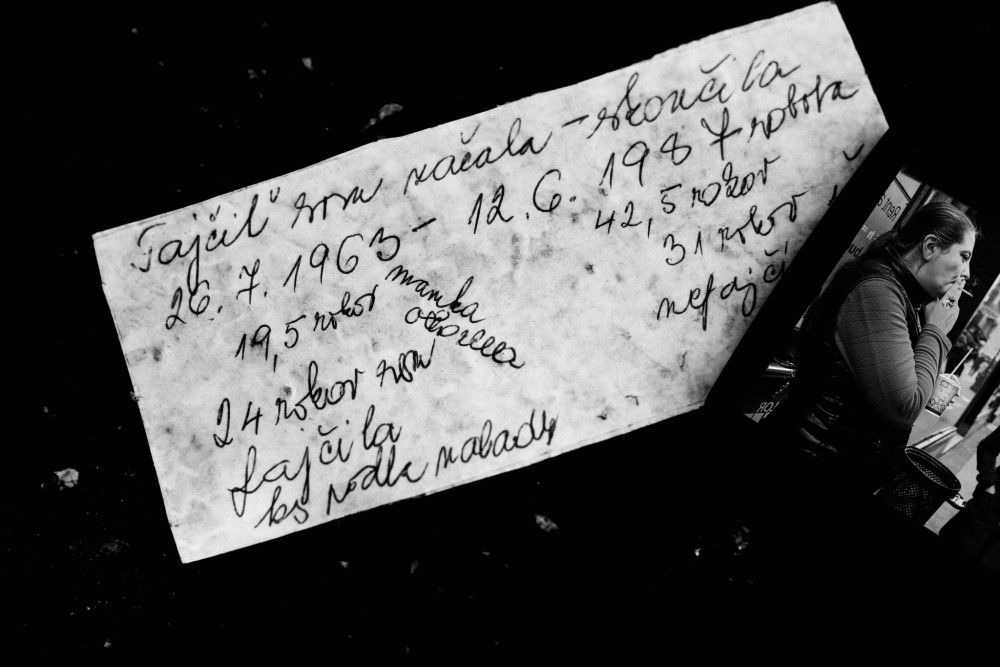 Fajčiť som začala - skončila
26.7.1963 - 12.6.1987 robota
19,5 rokov mamka 42,5 rokov
31 rokov
24 rokov som
nefajčí
fajčila
ks podla nalady